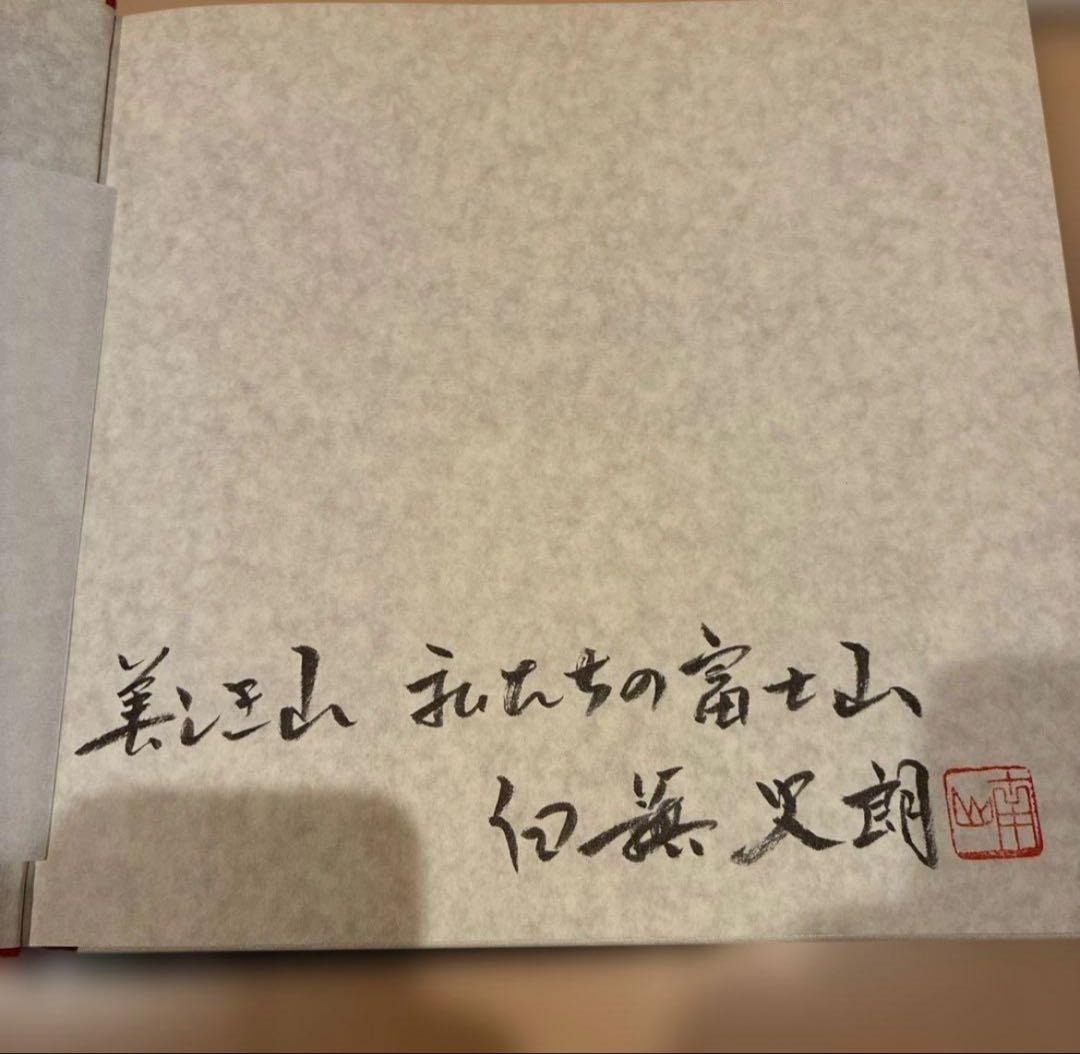 美しき山 私たちの富士山
白籏 史朗